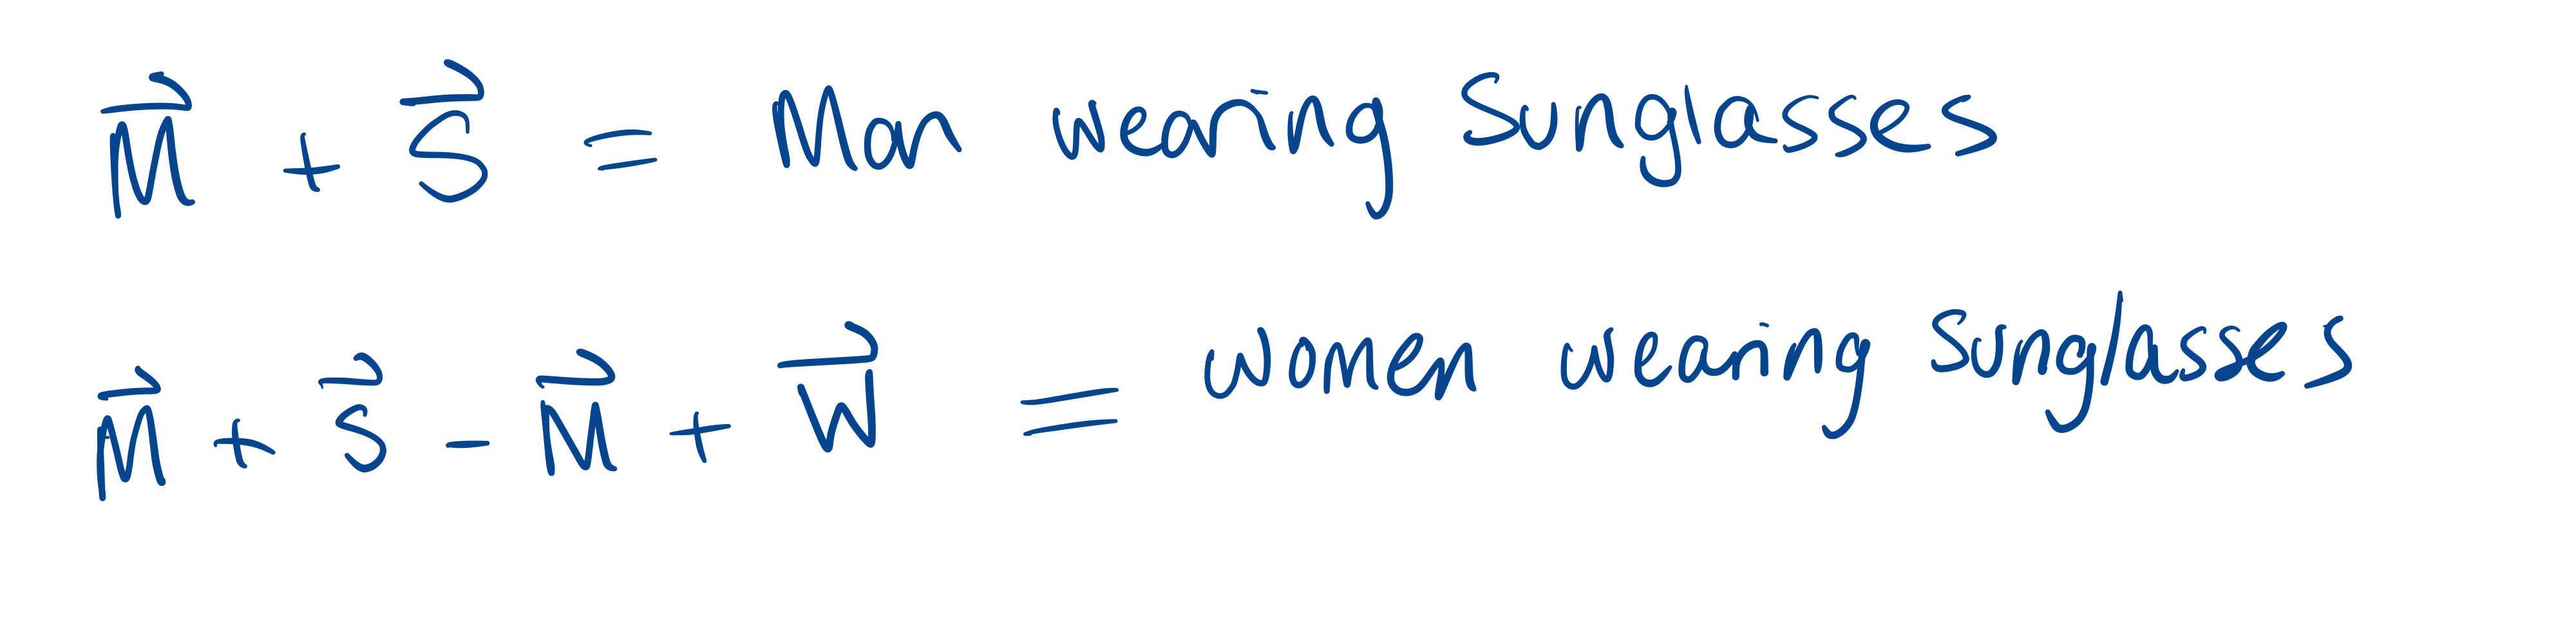 M⃗ + S⃗ = Man wearing Sunglasses
M⃗ + S⃗ - M⃗ + W⃗ = women wearing sunglasses